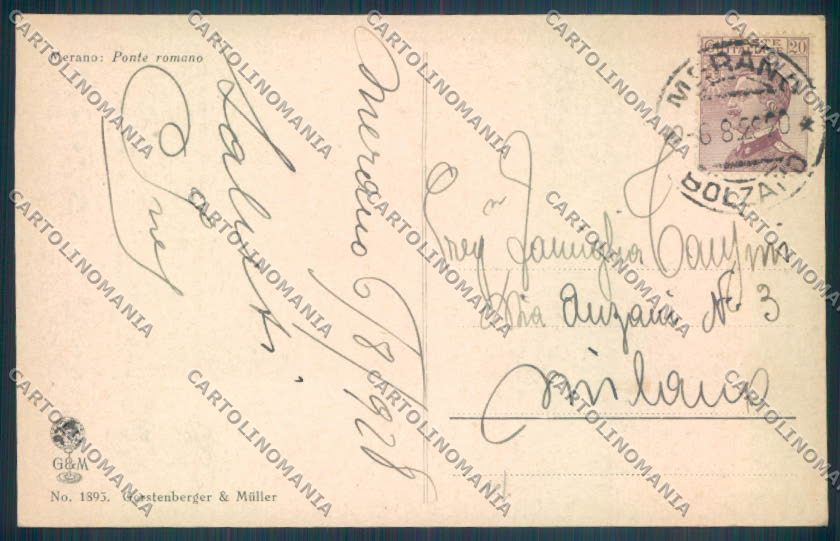 Merano: Ponte romano
Merano 6/8/928
Saluti
20
MERANO
6.8.28
BOLZANO
Famiglia
Via Anzani N. 3
Milano
G&M
No. 1893. Gerstenberger & Müller
CARTOLINOMANIA